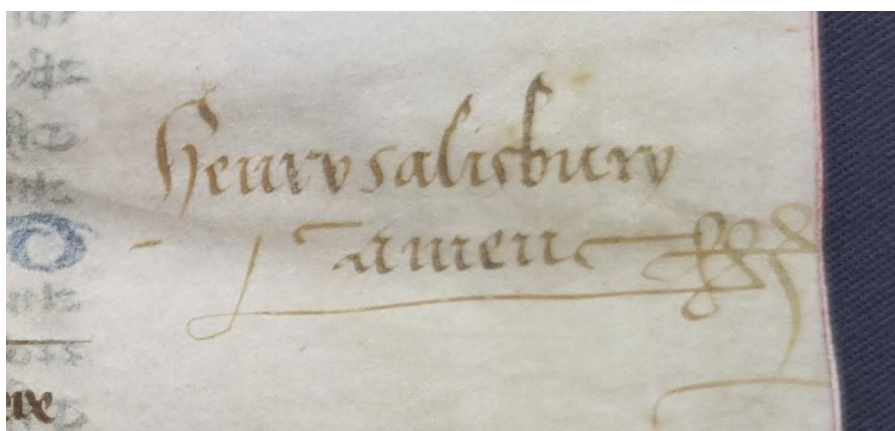 Henry salisbury
amen